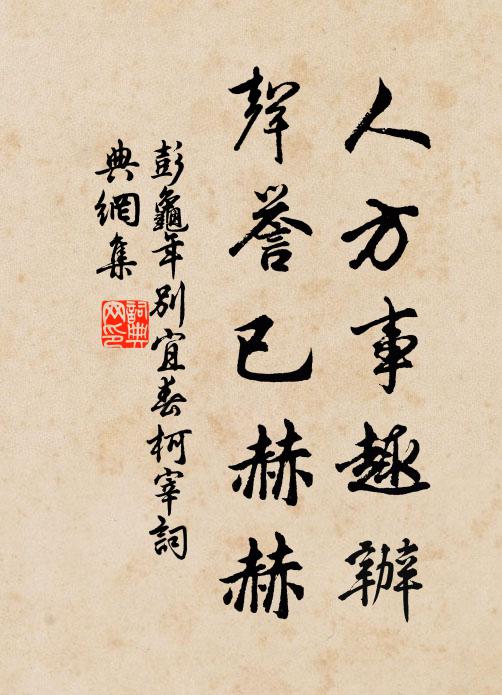 人方事趣辦
聲譽已赫赫
彭龜年別宜春柯宰詞
典網集
詞典
网印